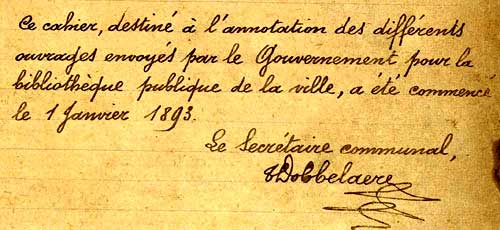 Ce cahier, destiné à l'annotation des différents
ouvrages envoyés par le Gouvernement pour la
bibliothèque publique de la ville, a été commencé
le 1 Janvier 1893.
Le Secrétaire communal,
Dobbelaere